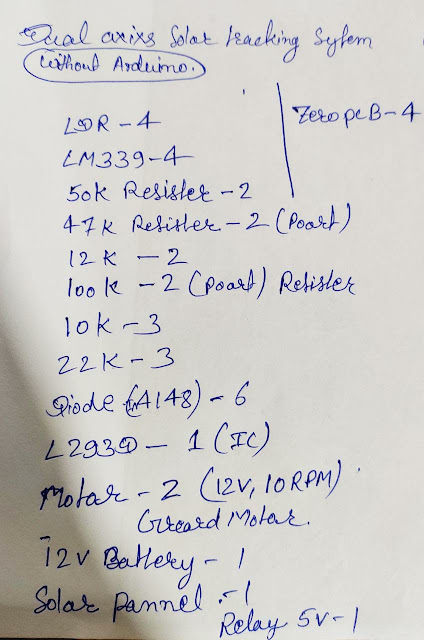 Dual axixs Solar tracking System
Without Arduino.
Zero pcB - 4
LDR - 4
LM339 - 4
50k Resister - 2
47k Resister - 2 (Poart)
12k - 2
100k - 2 (Poart) Resister
10k - 3
22k - 3
Diode (IN4148) - 6
L293D - 1 (IC)
Motar - 2 (12V, 10RPM)
Geeard Motar.
12v Battery - 1
Solar pannel - 1
Relay 5v - 1